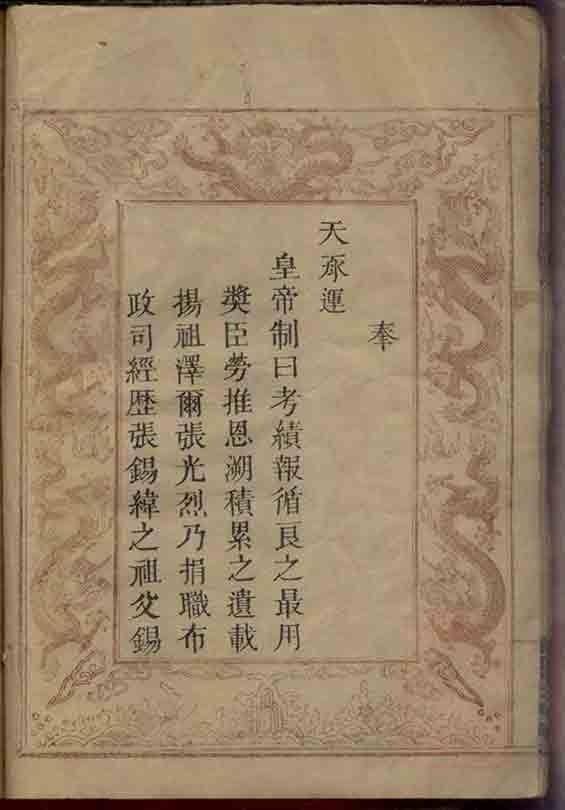 奉
天承運
皇帝制曰考績報循良之最用
奬臣勞推恩溯積累之遺載
揚祖澤爾張光烈乃捐職布
政司經歴張錫緯之祖父錫